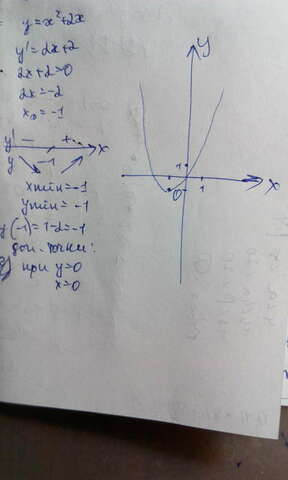 y=x²+2x
y'=2x+2
2x+2=0
2x=-2
x₀=-1
y' - + x
y -1
xmin=-1
ymin=-1
y(-1)=1-2=-1
доп. точки:
при y=0
x=0
y
1
0 1 x